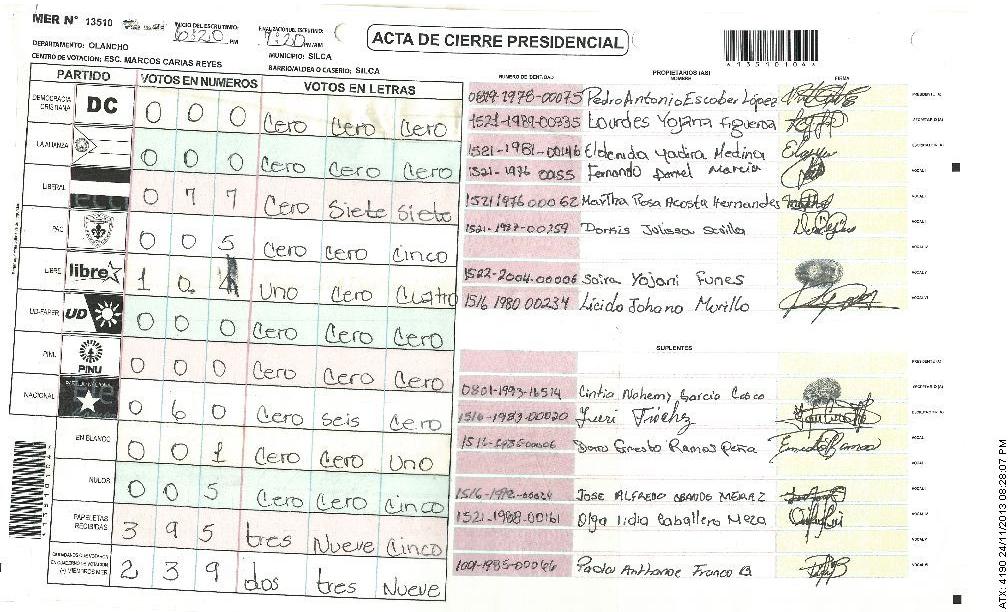 MER N° 13510
INICIO DEL ESCRUTINIO: 6:20 PM
FINALIZACION DEL ESCRUTINIO: PM/AM
ACTA DE CIERRE PRESIDENCIAL
DEPARTAMENTO: OLANCHO
MUNICIPIO: SILCA
CENTRO DE VOTACION: ESC. MARCOS CARIAS REYES
BARRIO/ALDEA O CASERIO: SILCA
PARTIDO VOTOS EN NUMEROS VOTOS EN LETRAS
DEMOCRACIA CRISTIANA DC 0 0 0 Cero Cero Cero
LA ALIANZA 0 0 0 Cero Cero Cero
LIBERAL 0 7 7 Cero Siete Siete
PAC 0 0 5 Cero Cero Cinco
LIBRE libre 1 0 4 Uno Cero Cuatro
UD-FAPER UD 0 0 0 Cero Cero Cero
PINU PINU 0 0 0 Cero Cero Cero
NACIONAL 0 6 0 Cero seis Cero
EN BLANCO 0 0 1 Cero Cero Uno
NULOS 0 0 5 Cero Cero Cinco
PAPELETAS RECIBIDAS 3 9 5 tres Nueve Cinco
CIUDADANOS QUE VOTARON EN CUADERNO DE VOTACION (+) MIEMBROS MER 2 3 9 dos tres Nueve
NUMERO DE IDENTIDAD PROPIETARIOS (AS) NOMBRE FIRMA
0819-1978-00075 Pedro Antonio Escober López PRESIDENTE (A)
1521-1989-00335 Lourdes Yojana Figueroa SECRETARIO (A)
1521-1981-00146 Yadira Medina ESCRUTADOR (A)
1521-1976 0055 Fernando Daniel Marcia VOCAL I
1521 1976 00062 Martha Rosa Acosta Hernandes
1521-1987-00259 Dornis Julissa Sevilla
1522-2004-00006 Saira Yojani Funes VOCAL V
1516 1980 00234 Licida Johana Murillo VOCAL VI
SUPLENTES
PRESIDENTE (A)
0801-1993-16514 Cintia Nohemy Garcia SECRETARIO (A)
1516-1983-00020 Yuri ESCRUTADOR (A)
Ernesto Ramos Peña VOCAL I
JOSE ALFREDO OBANDO MERAZ
1521-1988-00161 Olga lidia Caballero Meza
Franco B
ATX: 4190 24/11/2013 08:28:07 PM